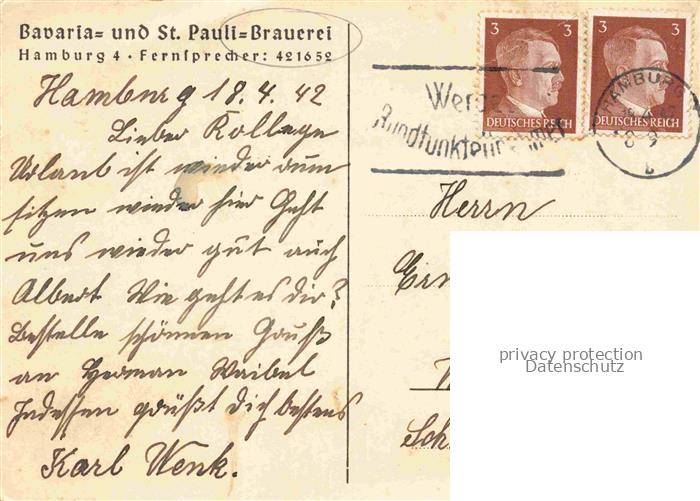 Bavaria- und St. Pauli-Brauerei
Hamburg 4 · Fernsprecher: 421652
Hamburg 18.4.42
Lieber Kollege
Urlaub ist wieder rum
sitzen wieder hier Geht
uns wieder gut auch
Albert Wie geht es dir?
Bestelle schönen Gruß
an Herman Waibel
Indessen grüßt Dich bestens
Karl Wenk.
3 3
DEUTSCHES REICH DEUTSCHES REICH
HAMBURG
b
Rundfunkteilnehmer
Herrn
Ern
Sch
privacy protection
Datenschutz